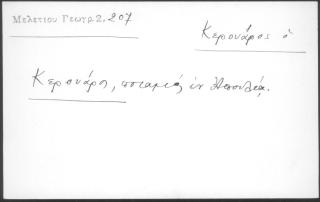 Μελετίου Γεωγρ. 2, 207
Κερουάρος ὁ
Κερουάρος, ποταμὸς ἐν Ἀπουλίᾳ.